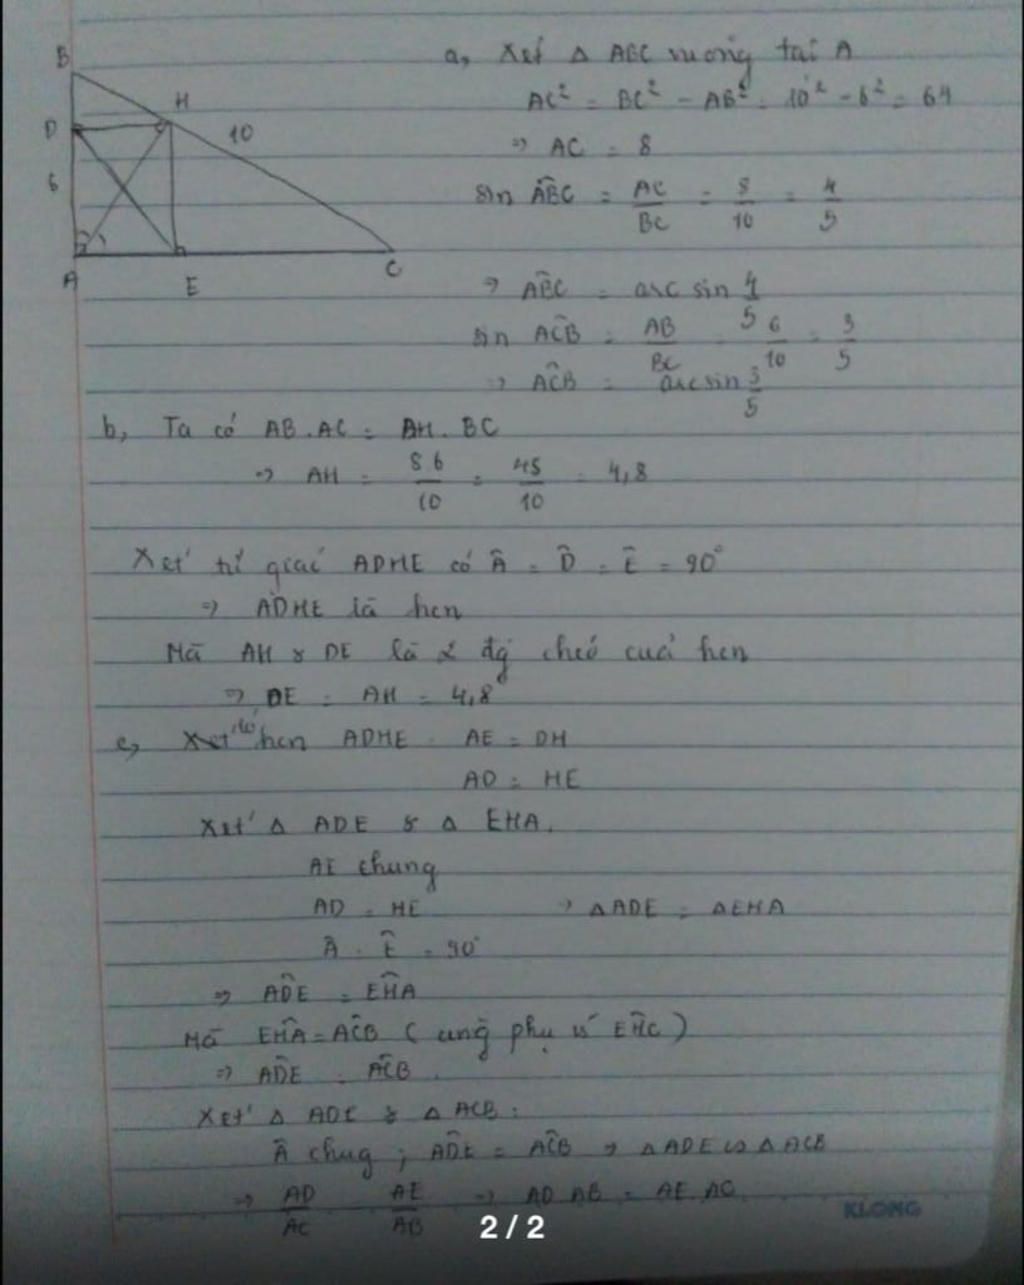 B
H
D
10
6
A
E
C
a, Xét Δ ABC vuông tại A
AC² = BC² - AB² = 10² - 6² = 64
⇒ AC = 8
sin ABĈ = AC/BC = 8/10 = 4/5
⇒ ABĈ = arc sin 4/5
sin ACB̂ = AB/BC = 6/10 = 3/5
⇒ ACB̂ = arcsin 3/5
b, Ta có AB.AC = AH.BC
⇒ AH = 8.6/10 = 48/10 = 4,8
Xét tứ giác ADHE có Â = D̂ = Ê = 90°
⇒ ADHE là hcn
Mà AH & DE là 2 đg chéo của hcn
⇒ DE = AH = 4,8
c, Xét hcn ADHE AE = DH
AD = HE
Xét Δ ADE & Δ EHA.
AE chung
AD = HE ⇒ ΔADE = ΔEHA
Â = Ê = 90°
⇒ ADÊ = EHÂ
Mà EHÂ = ACB̂ (cùng phụ vs EHĈ)
⇒ ADÊ = ACB̂.
Xét Δ ADE & Δ ACB:
Â chug ; ADÊ = ACB̂ ⇒ ΔADE ∽ ΔACB
⇒ AD/AC = AE/AB ⇒ AD.AB = AE.AC.
KLONG
2 / 2